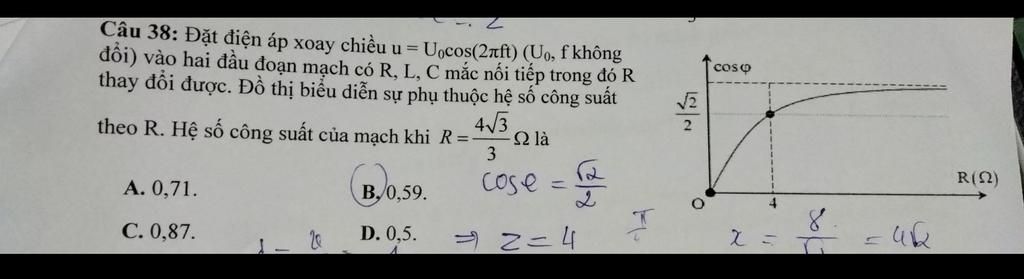 Câu 38: Đặt điện áp xoay chiều u = U₀cos(2πft) (U₀, f không
đổi) vào hai đầu đoạn mạch có R, L, C mắc nối tiếp trong đó R
thay đổi được. Đồ thị biểu diễn sự phụ thuộc hệ số công suất
theo R. Hệ số công suất của mạch khi R = 4√3/3 Ω là
A. 0,71.
B. 0,59.
C. 0,87.
D. 0,5.
cosφ
√2/2
R(Ω)
O
4
cosφ = √2/2
⇒ Z = 4
x = 8 = 4√2